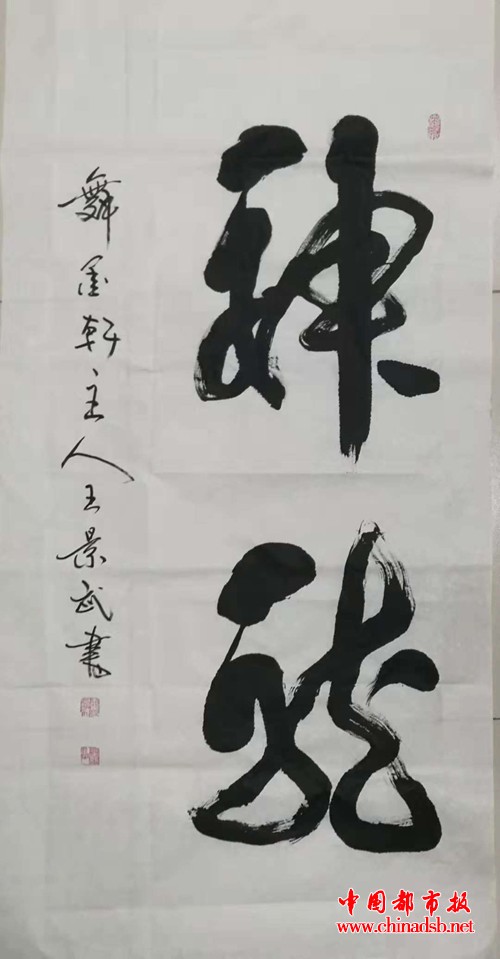 神龍
舞墨轩主人王景武書
中国都市报
www.chinadsb.net